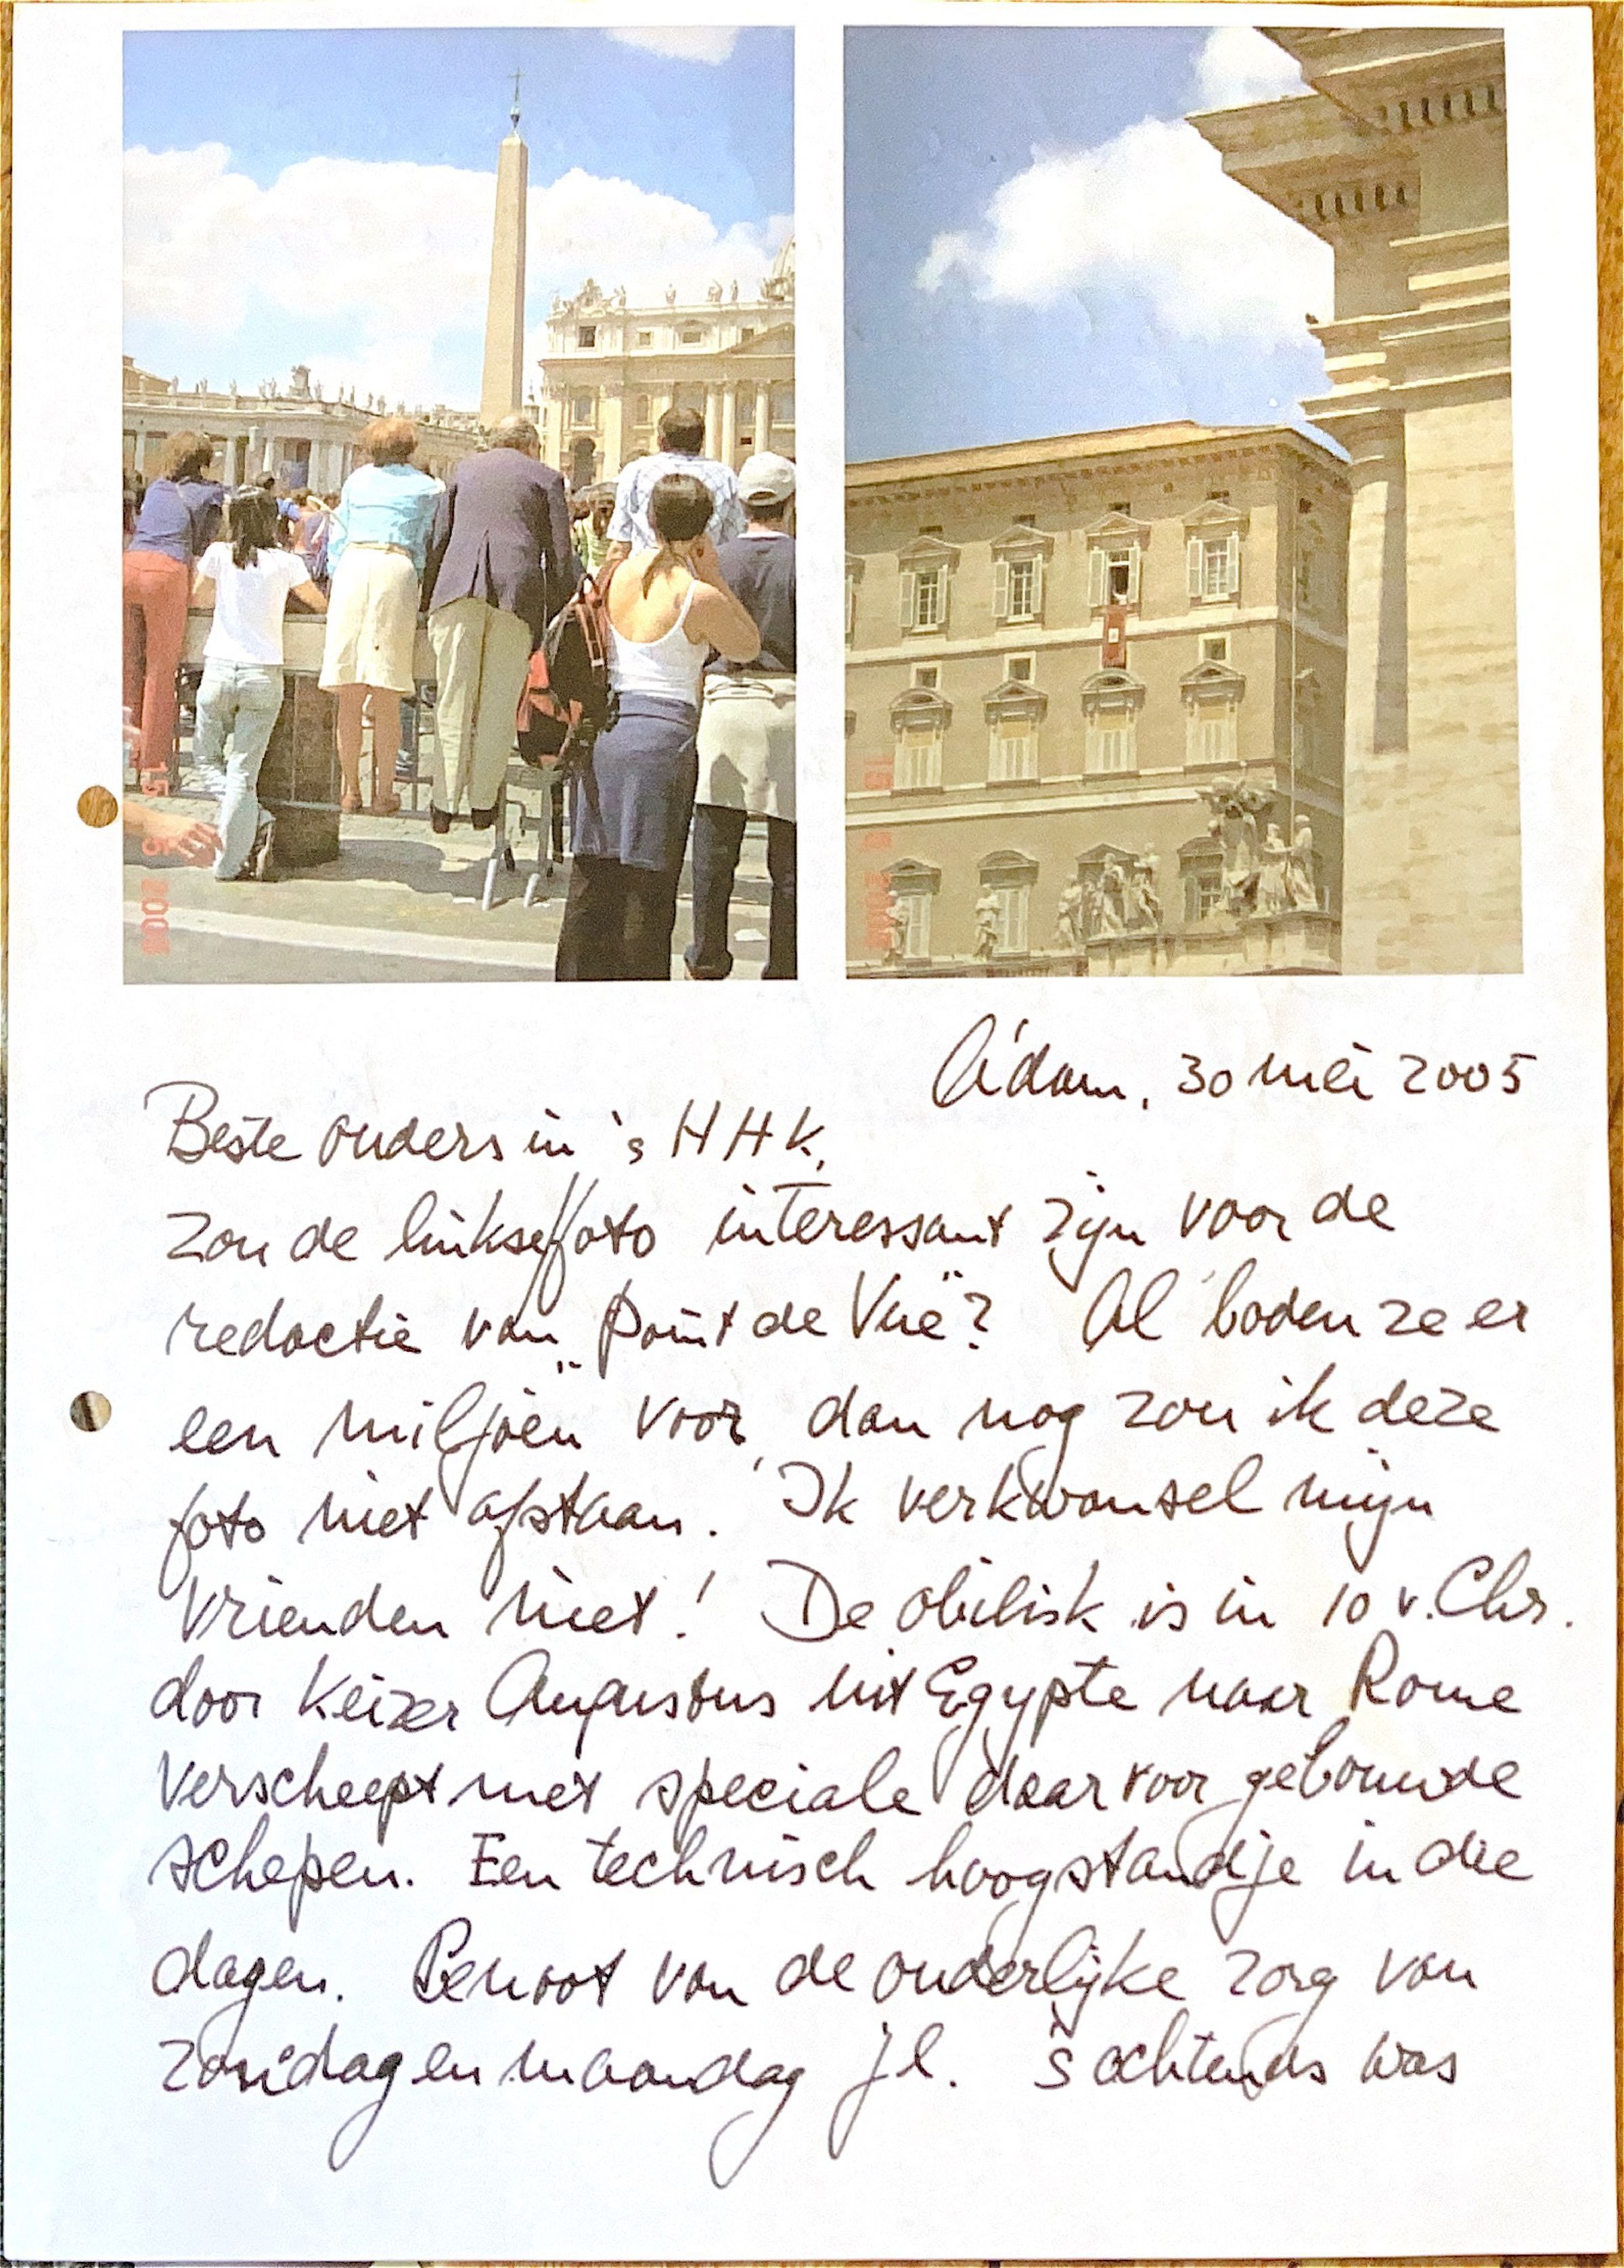 A'dam, 30 mei 2005
Beste ouders in 's HHK,
Zou de linkse foto interessant zijn voor de
redactie van „Point de Vue"? Al boden ze er
een miljoen voor, dan nog zou ik deze
foto niet afstaan. Ik verkwansel mijn
vrienden niet! De obilisk is in 10 v. Chr.
door Keizer Augustus uit Egypte naar Rome
verscheept met speciale daarvoor gebouwde
schepen. Een technisch hoogstandje in die
dagen. Genoot van de ouderlijke zorg van
zondag en maandag jl. 's ochtends was